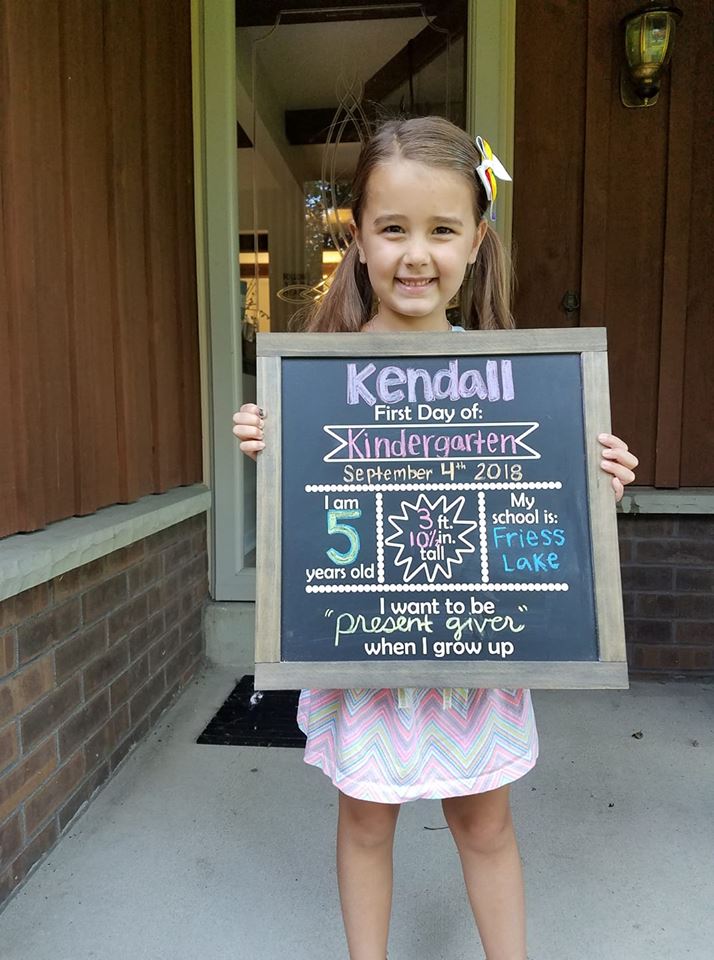 Kendall
First Day of:
Kindergarten
September 4th 2018
I am
5
years old
3 ft.
10½ in.
tall
My
school is:
Friess
Lake
I want to be
"present giver"
when I grow up